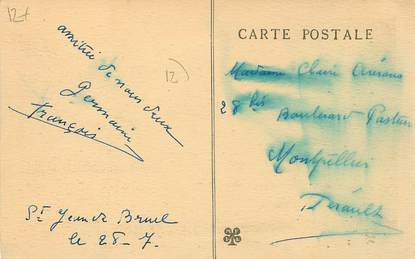 12+
amitiés de nous deux
Germaine
François
St Jean du Bruel
le 28-7.
12
CARTE POSTALE
Madame Claire
28 bis Boulevard Pasteur
Montpellier
Hérault